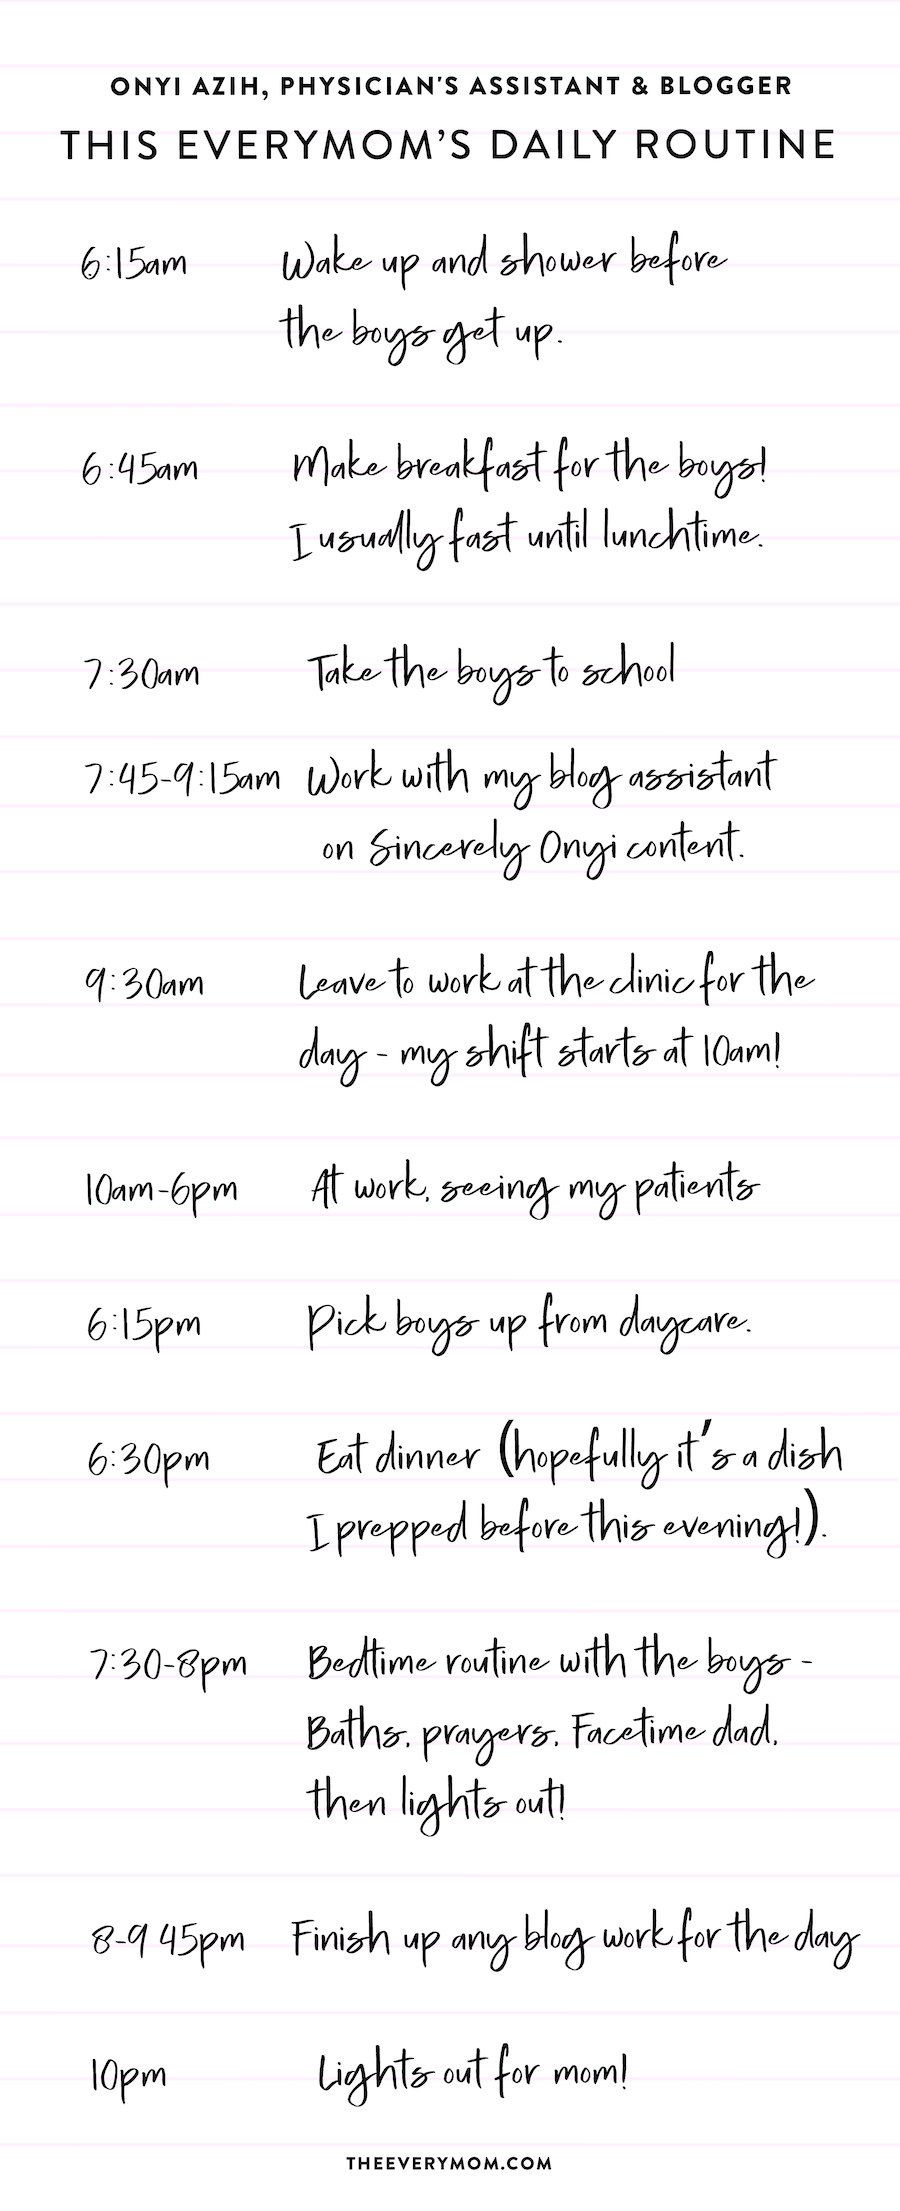 ONYI AZIH, PHYSICIAN'S ASSISTANT & BLOGGER
THIS EVERYMOM'S DAILY ROUTINE
6:15am Wake up and shower before
the boys get up.
6:45am Make breakfast for the boys!
I usually fast until lunchtime.
7:30am Take the boys to school
7:45-9:15am Work with my blog assistant
on Sincerely Onyi content.
9:30am Leave to work at the clinic for the
day - my shift starts at 10am!
10am-6pm At work, seeing my patients
6:15pm Pick boys up from daycare.
6:30pm Eat dinner (hopefully it's a dish
I prepped before this evening!).
7:30-8pm Bedtime routine with the boys -
Baths, prayers, Facetime dad,
then lights out!
8-9 45pm Finish up any blog work for the day
10pm Lights out for mom!
THEEVERYMOM.COM